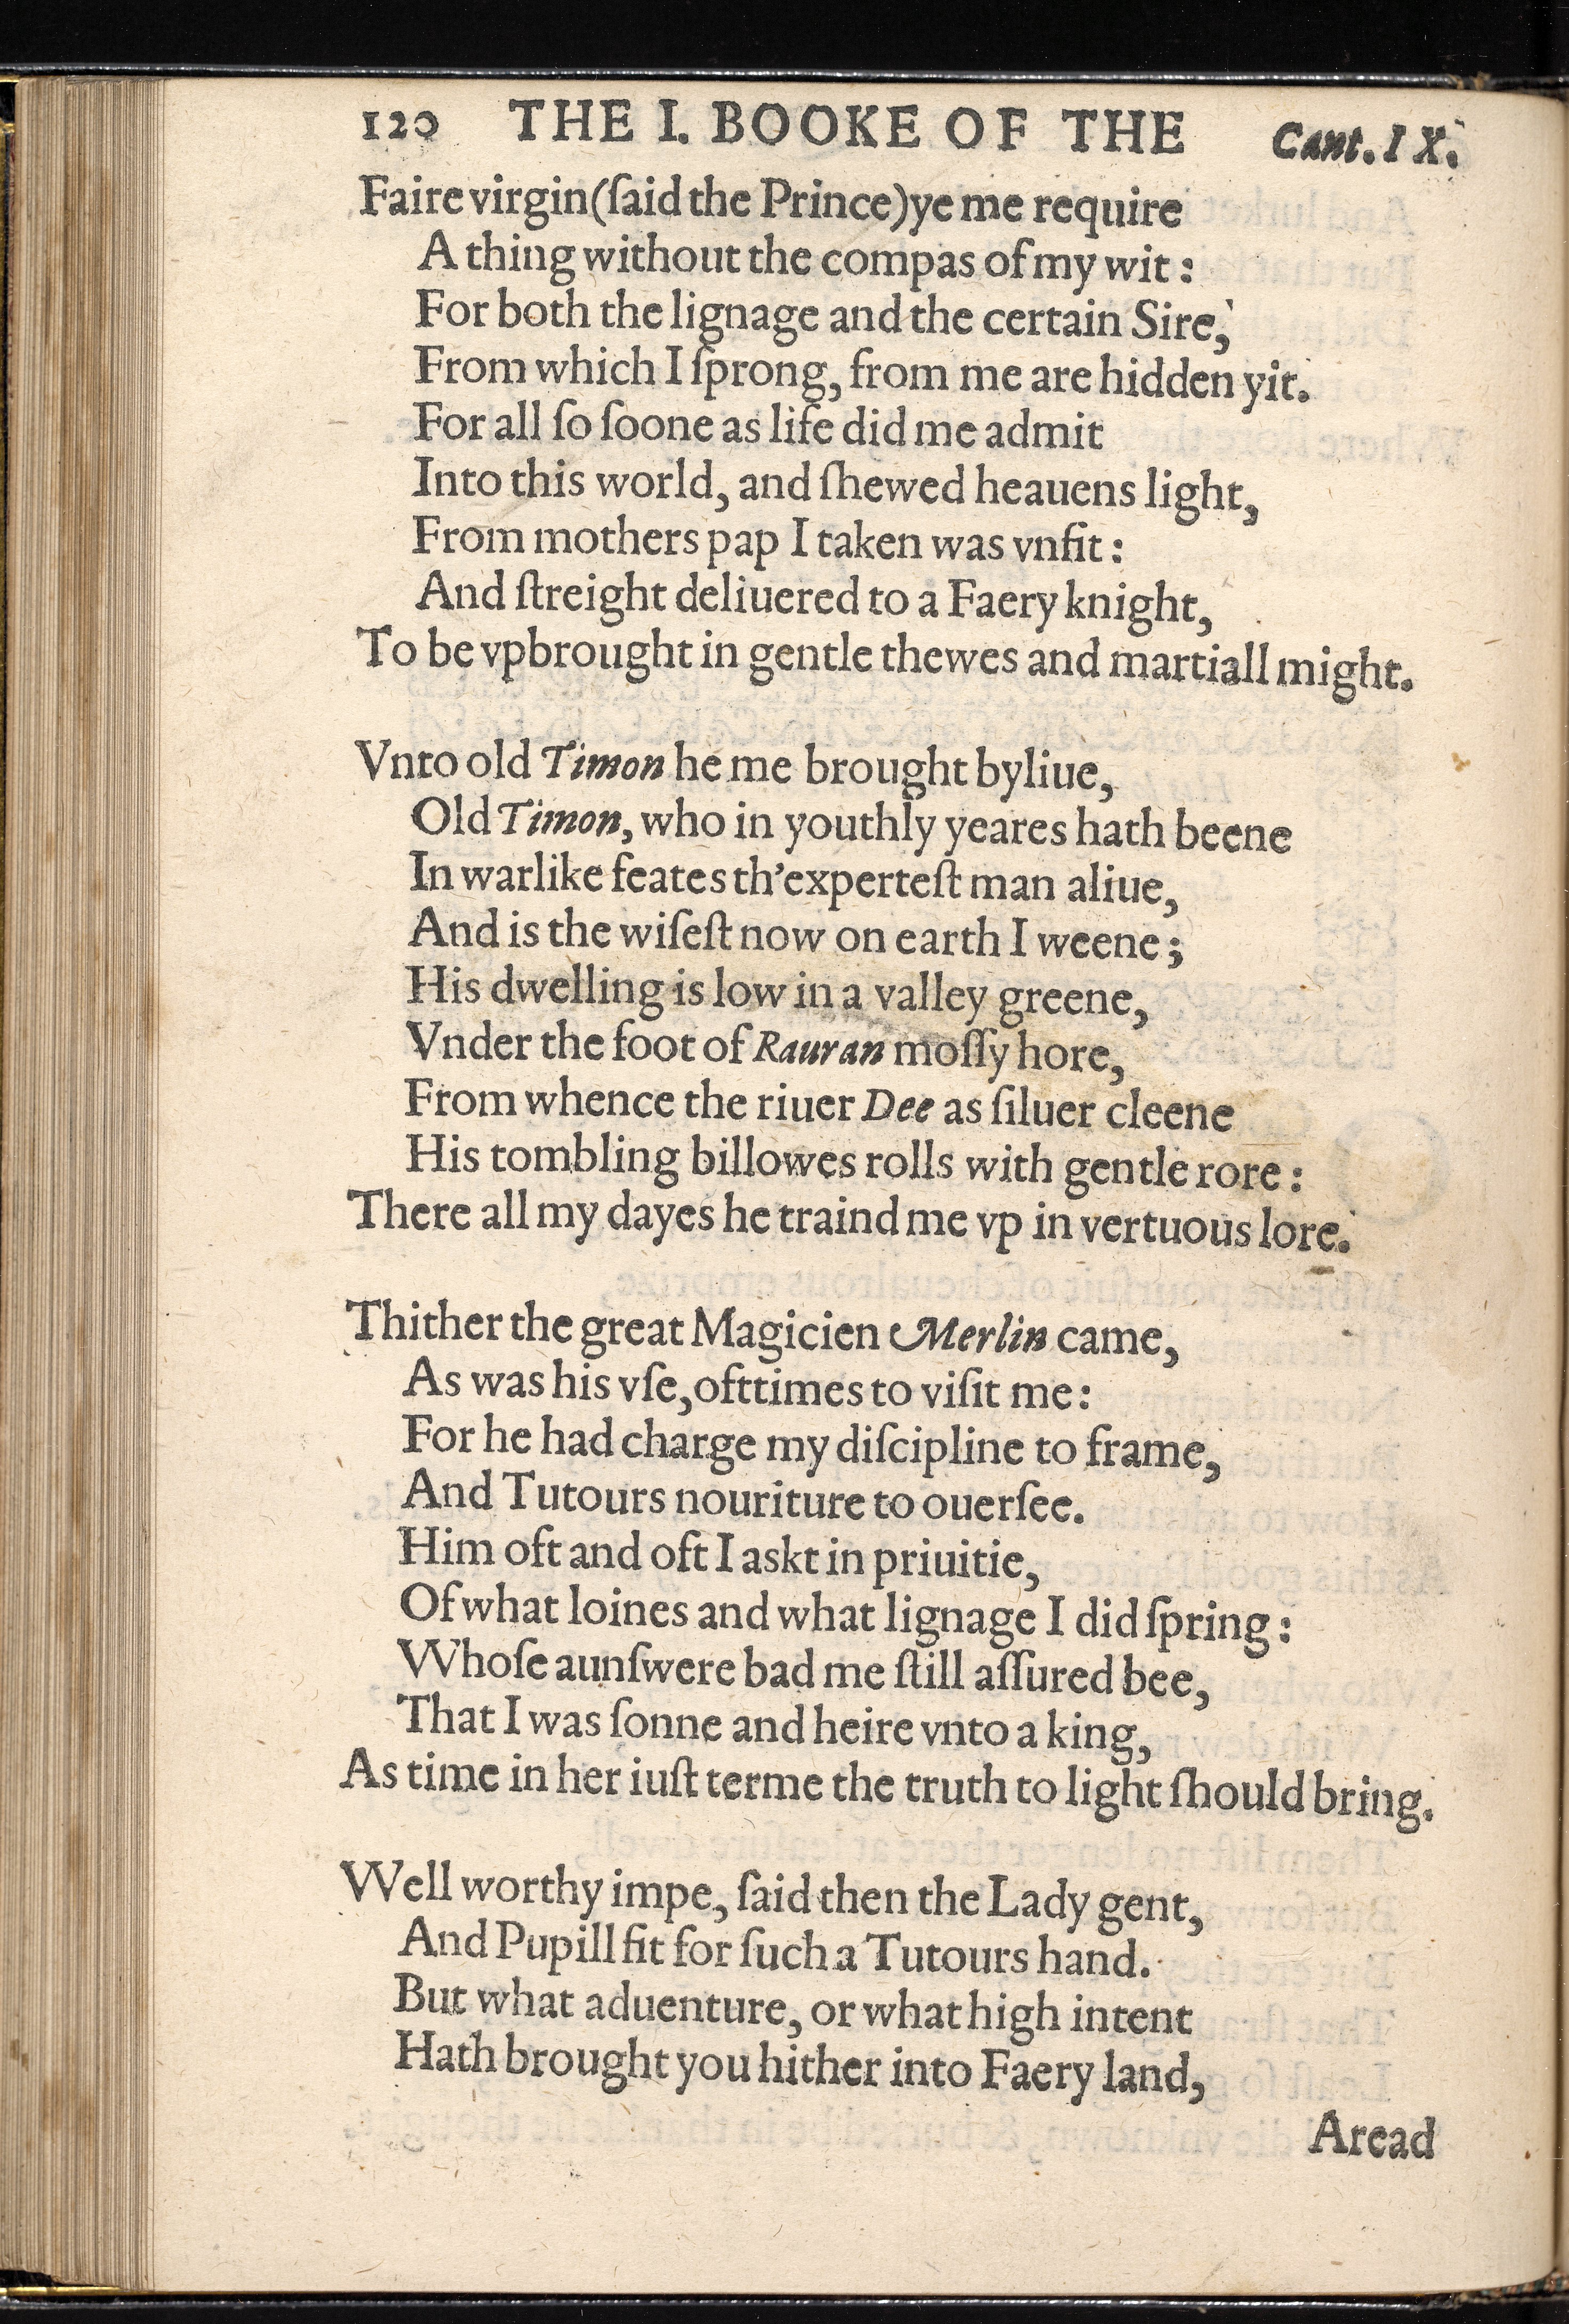 120 THE I. BOOKE OF THE Cant. IX.
Faire virgin (ſaid the Prince) ye me require
A thing without the compas of my wit:
For both the lignage and the certain Sire,
From which I ſprong, from me are hidden yit.
For all ſo ſoone as life did me admit
Into this world, and ſhewed heauens light,
From mothers pap I taken was vnfit:
And ſtreight deliuered to a Faery knight,
To be vpbrought in gentle thewes and martiall might.
Vnto old Timon he me brought byliue,
Old Timon, who in youthly yeares hath beene
In warlike feates th'experteſt man aliue,
And is the wiſeſt now on earth I weene;
His dwelling is low in a valley greene,
Vnder the foot of Rauran moſſy hore,
From whence the riuer Dee as ſiluer cleene
His tombling billowes rolls with gentle rore:
There all my dayes he traind me vp in vertuous lore.
Thither the great Magicien Merlin came,
As was his vſe, ofttimes to viſit me:
For he had charge my diſcipline to frame,
And Tutours nouriture to ouerſee.
Him oft and oft I askt in priuitie,
Of what loines and what lignage I did ſpring:
Whoſe aunſwere bad me ſtill aſſured bee,
That I was ſonne and heire vnto a king,
As time in her iuſt terme the truth to light ſhould bring.
Well worthy impe, ſaid then the Lady gent,
And Pupill fit for ſuch a Tutours hand.
But what aduenture, or what high intent
Hath brought you hither into Faery land,
Aread